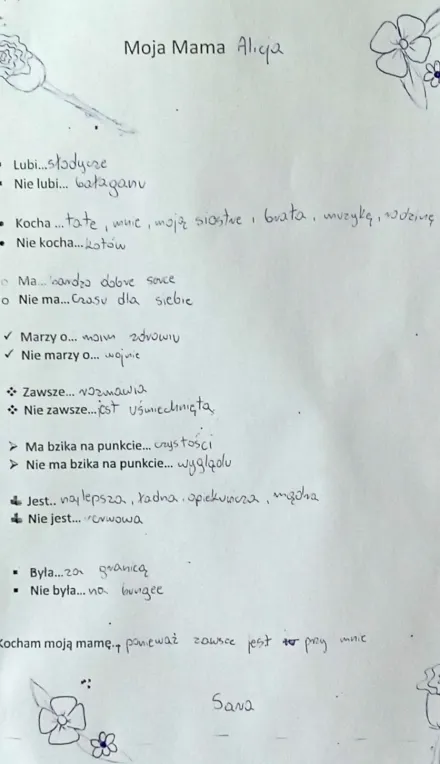 Moja Mama Alicja
Lubi...słodycze
Nie lubi... bałaganu
Kocha ...tatę, mnie, moją siostrę i brata, muzykę, rodzinę
Nie kocha...kotów
Ma...bardzo dobre serce
Nie ma...Czasu dla siebie
Marzy o... moim zdrowiu
Nie marzy o... wojnie
Zawsze... rozmawia
Nie zawsze...jest uśmiechnięta
Ma bzika na punkcie... czystości
Nie ma bzika na punkcie... wyglądu
Jest.. najlepsza, ładna, opiekuńcza, mądra
Nie jest... nerwowa
Była...za granicą
Nie była... na bungee
Kocham moją mamę., ponieważ zawsze jest przy mnie
Sara